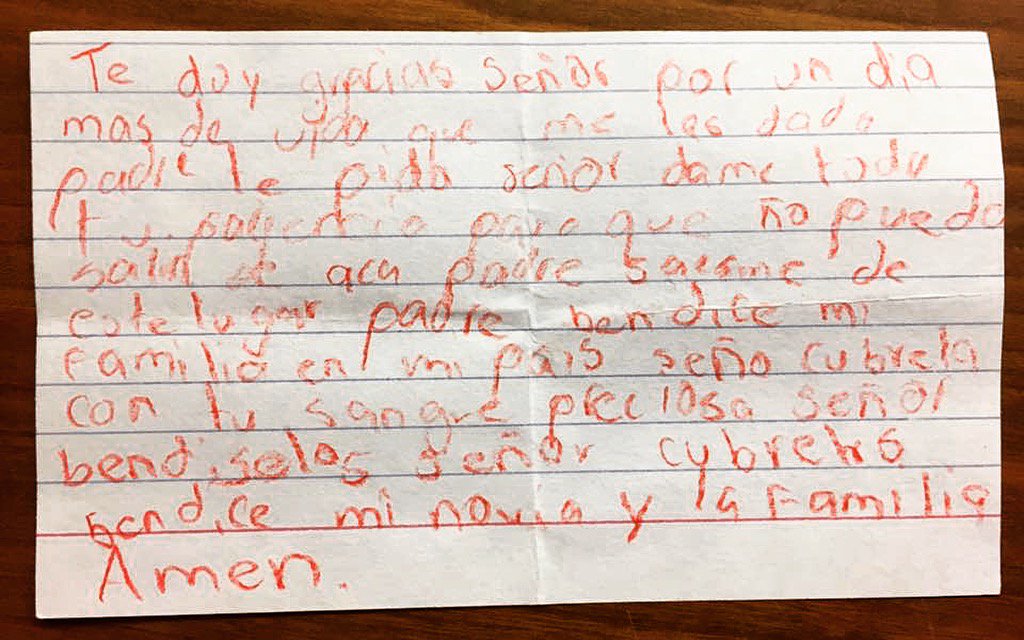 Te doy gracias Señor por un dia
mas de vida que me las dado
padre te pido señor dame toda
tu para que no puedo
salir de aca padre sacame de
este lugar padre bendice mi
familia en mi pais seño cubrela
con tu sangre preciosa señor
bendiselos señor cubrelos
bendice mi novia y la familia
Amen.